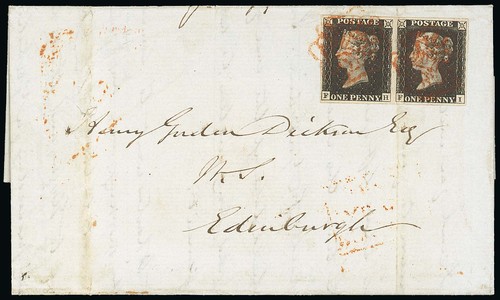 POSTAGE POSTAGE
F ONE PENNY H F ONE PENNY I
Henry Gordon Dickson Esq
W.S.
Edinburgh